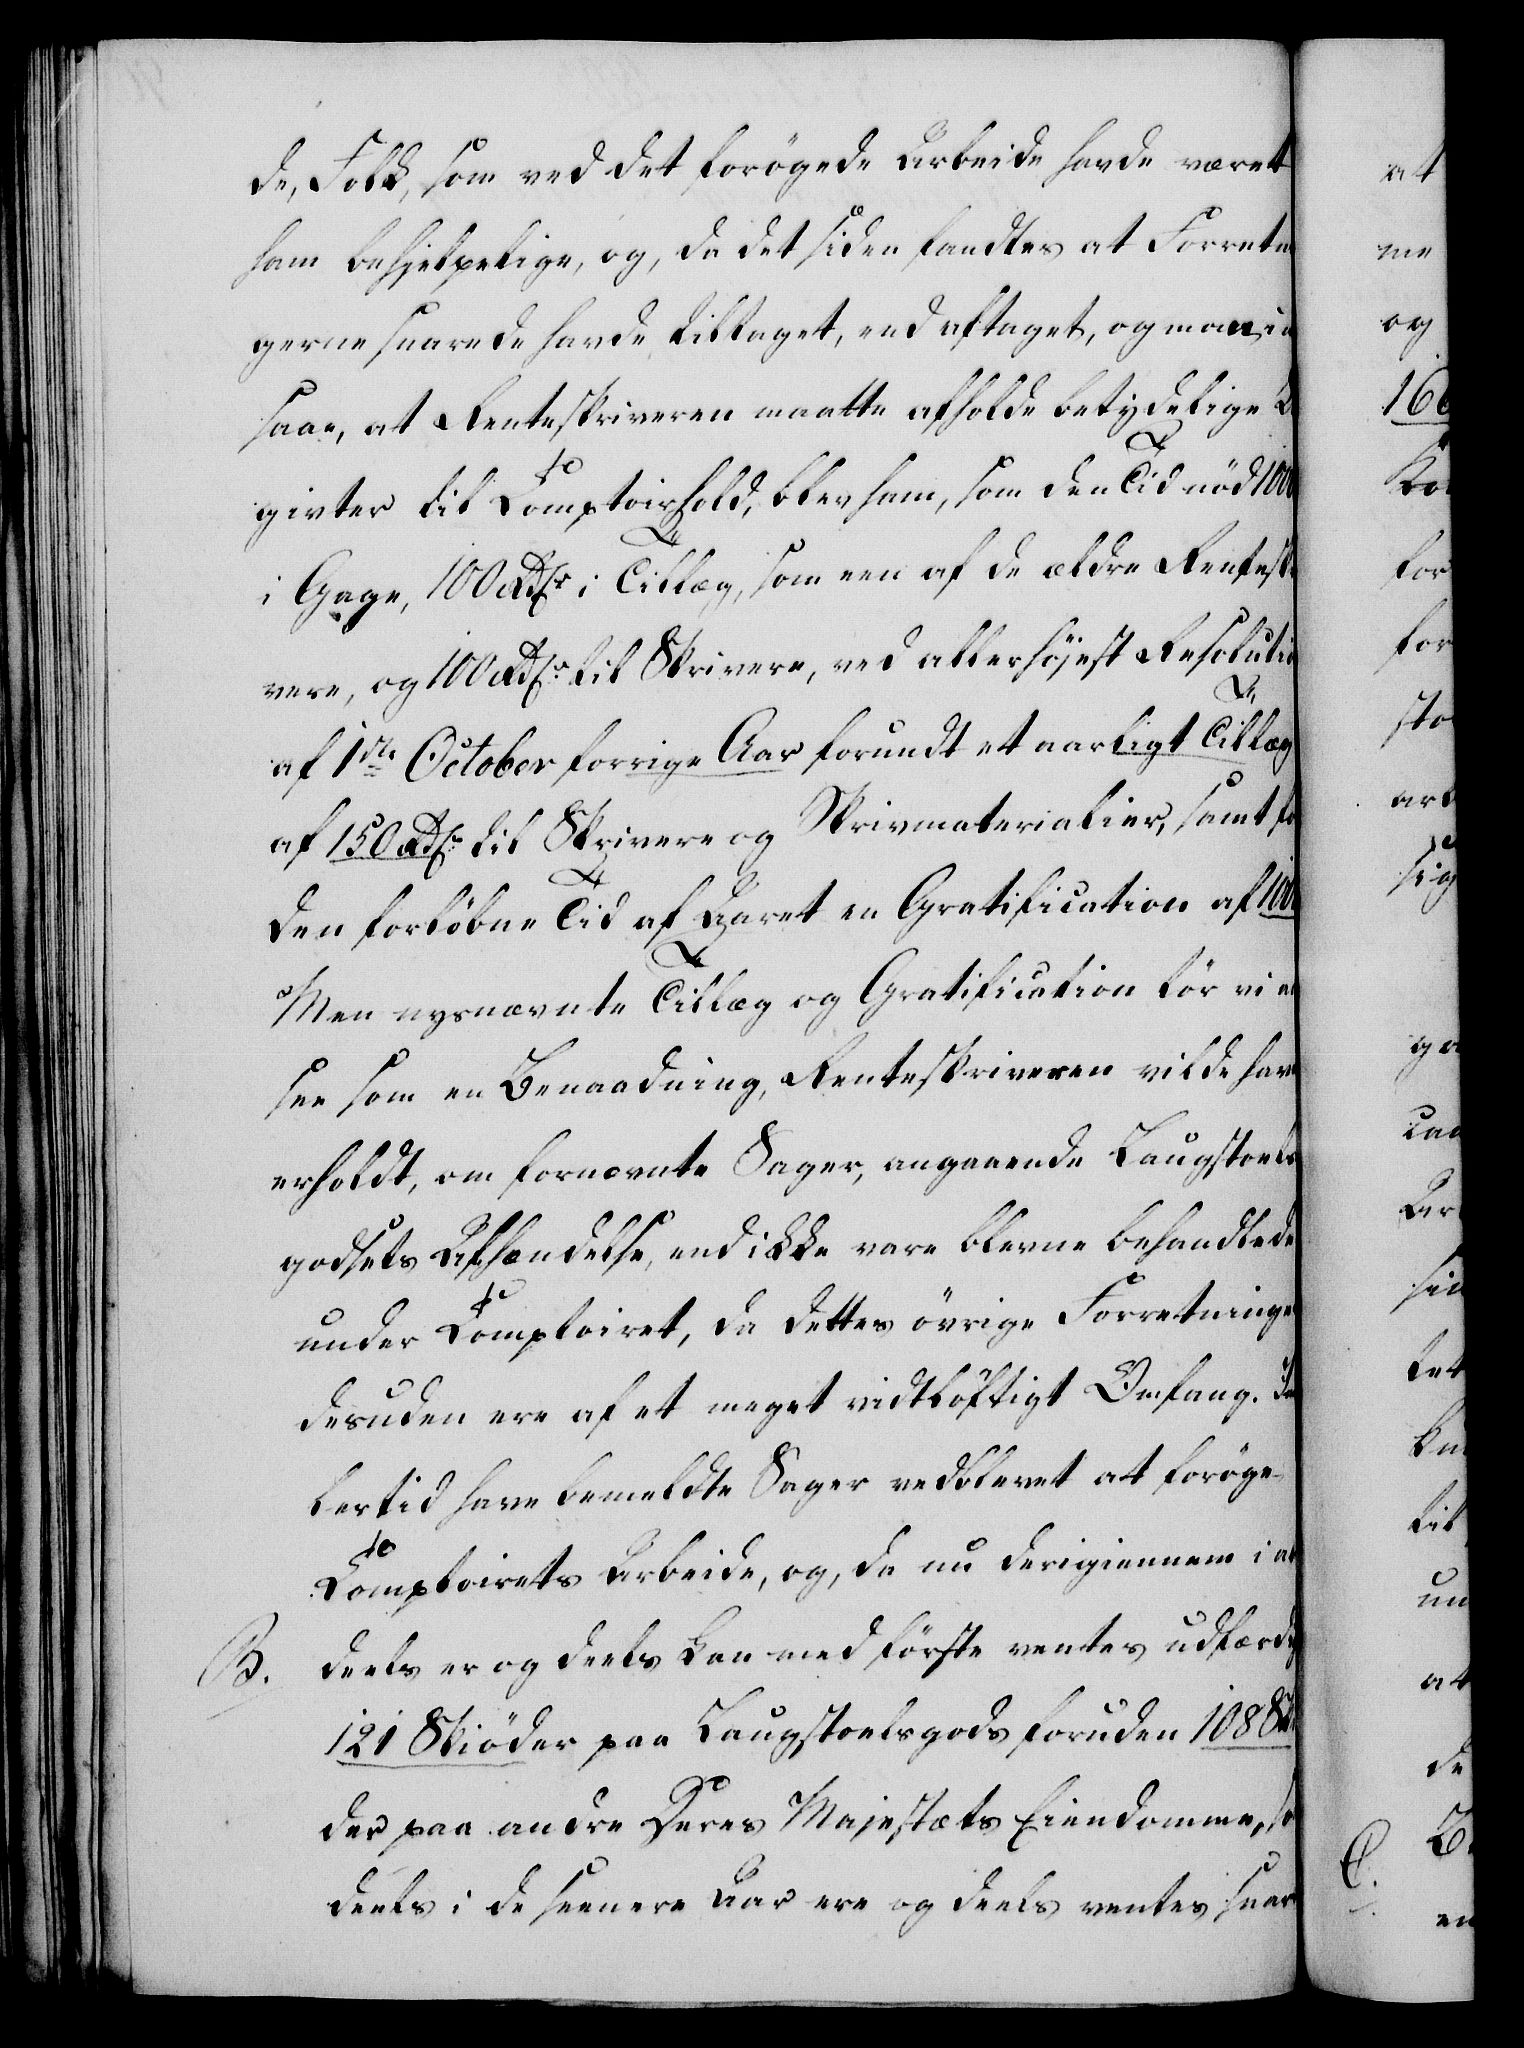 de, Folk, som ved det forögede Arbeide havde været
ham behjelpelige, og, da det siden fandtes at Forretnin
gerne snarede havde tiltaget, end aftaget, og man ind
saae, at Renteskriveren maatte afholde betydelige U
givter til Comptoirhold, blev ham, som den Tid nöd 1000
i Gage, 100 Rdlr i Tillæg, som een af de ældre Renteskri
vere, og 100 Rdlr til Skrivere, ved allerhöjest Resolutio
af 1ste October forrige Aar forundt et aarligt Tillæg
af 150 Rdlr til Skrivere og Skrivmaterialier, samt fo
den forløbne Tid af Aaret en Gratification af 100
Men nysnævnte Tillæg og Gratification tör vi an
see som en Benaadning, Renteskriveren vilde have
erholdt, om fornævnte Sager, angaaende Laugstoels
godsets Afhændelse, end ikke vare blevne behandlede
under Comptoiret, da dettes övrige Forretninger
desuden ere af et meget vidtlöftigt Omfang. Im
lertid have bemeldte Sager vedblevet at foröge
Comptoirets Arbeide, og, da nu derigiennem i al
B. deels er og deels kan med förste ventes udfærdig
121 Skiöder paa Laugstoelsgods foruden 108 Ski
der paa andre Deres Majestæts Eiendomme, so
deels i de seenere Aar ere og deels ventes snar
at
me
og
166
for
for
sto
arb
sig
Ar
sin
let
til
un
at
de
C.
en